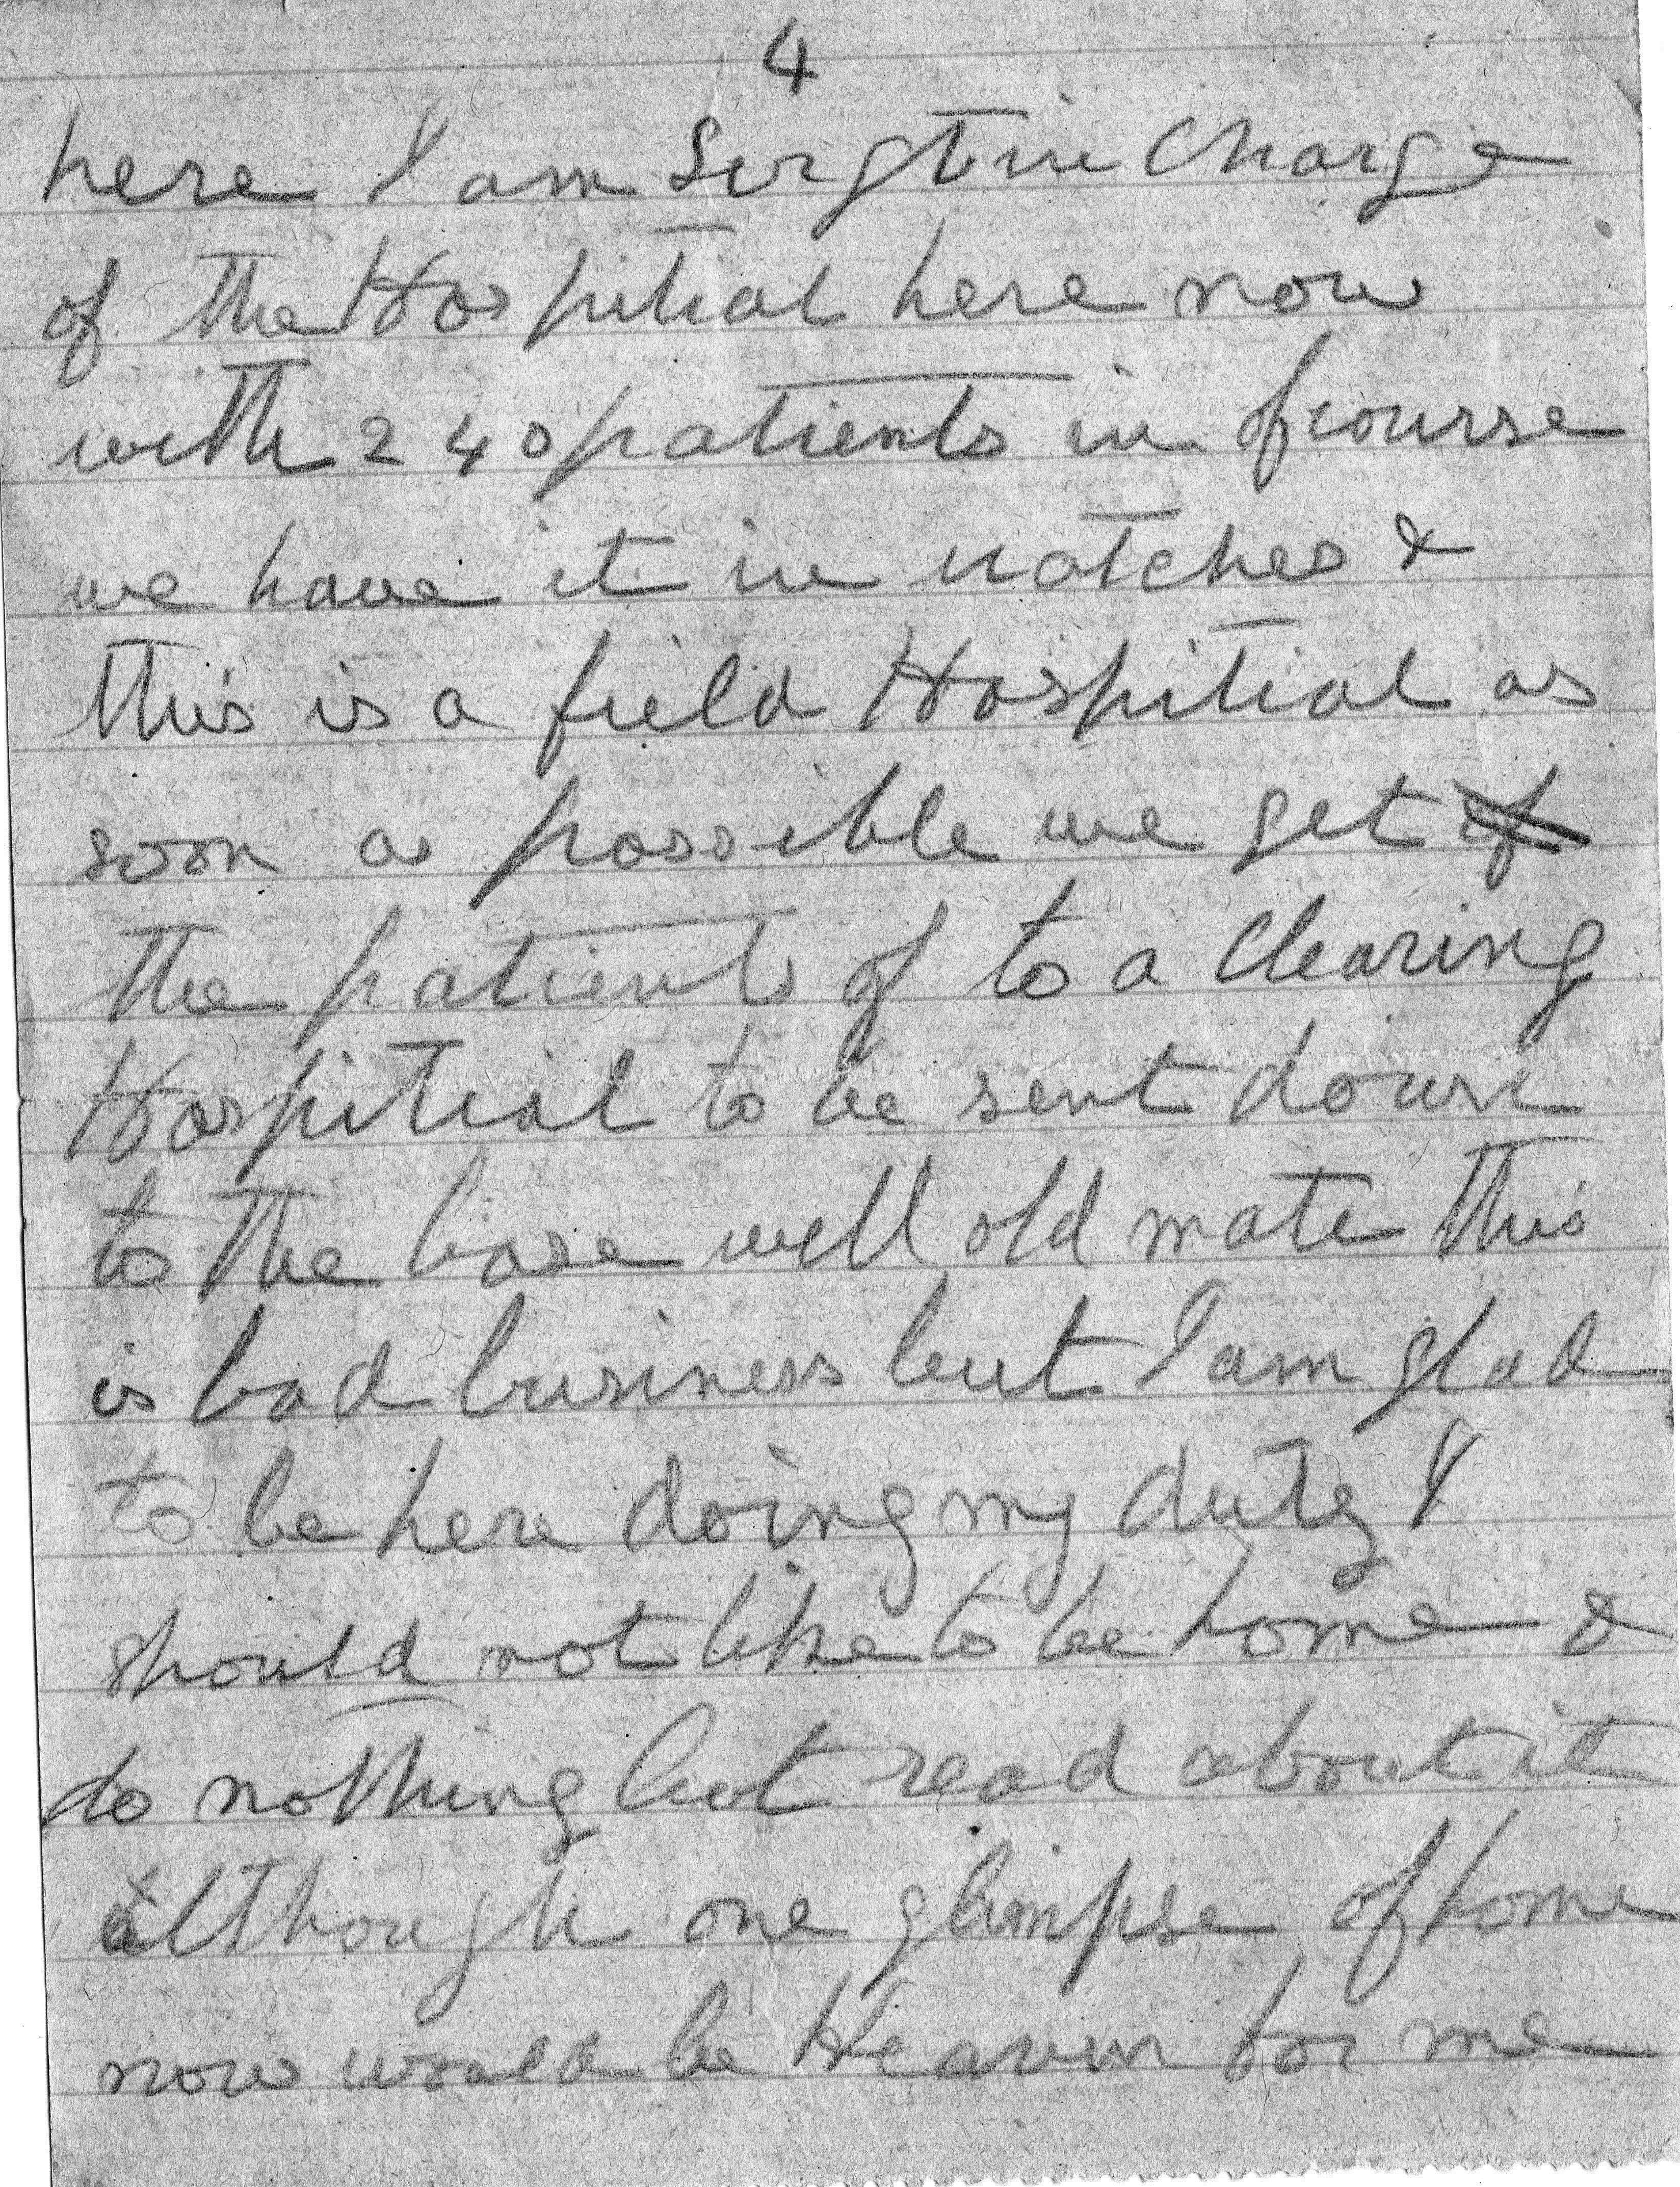 4
here I am Sergt in Charge
of the Hospitial here now
with 240 patients in of course
we have it in natches &
this is a field Hospitial as
soon as possible we get of
the patients of to a Clearing
Hospitial to be sent down
to the base well old mate this
is bad business but I am glad
to be here doing my duty I
should not like to be home &
do nothing but read about it
although one glimpse of home
now would be Heaven for me